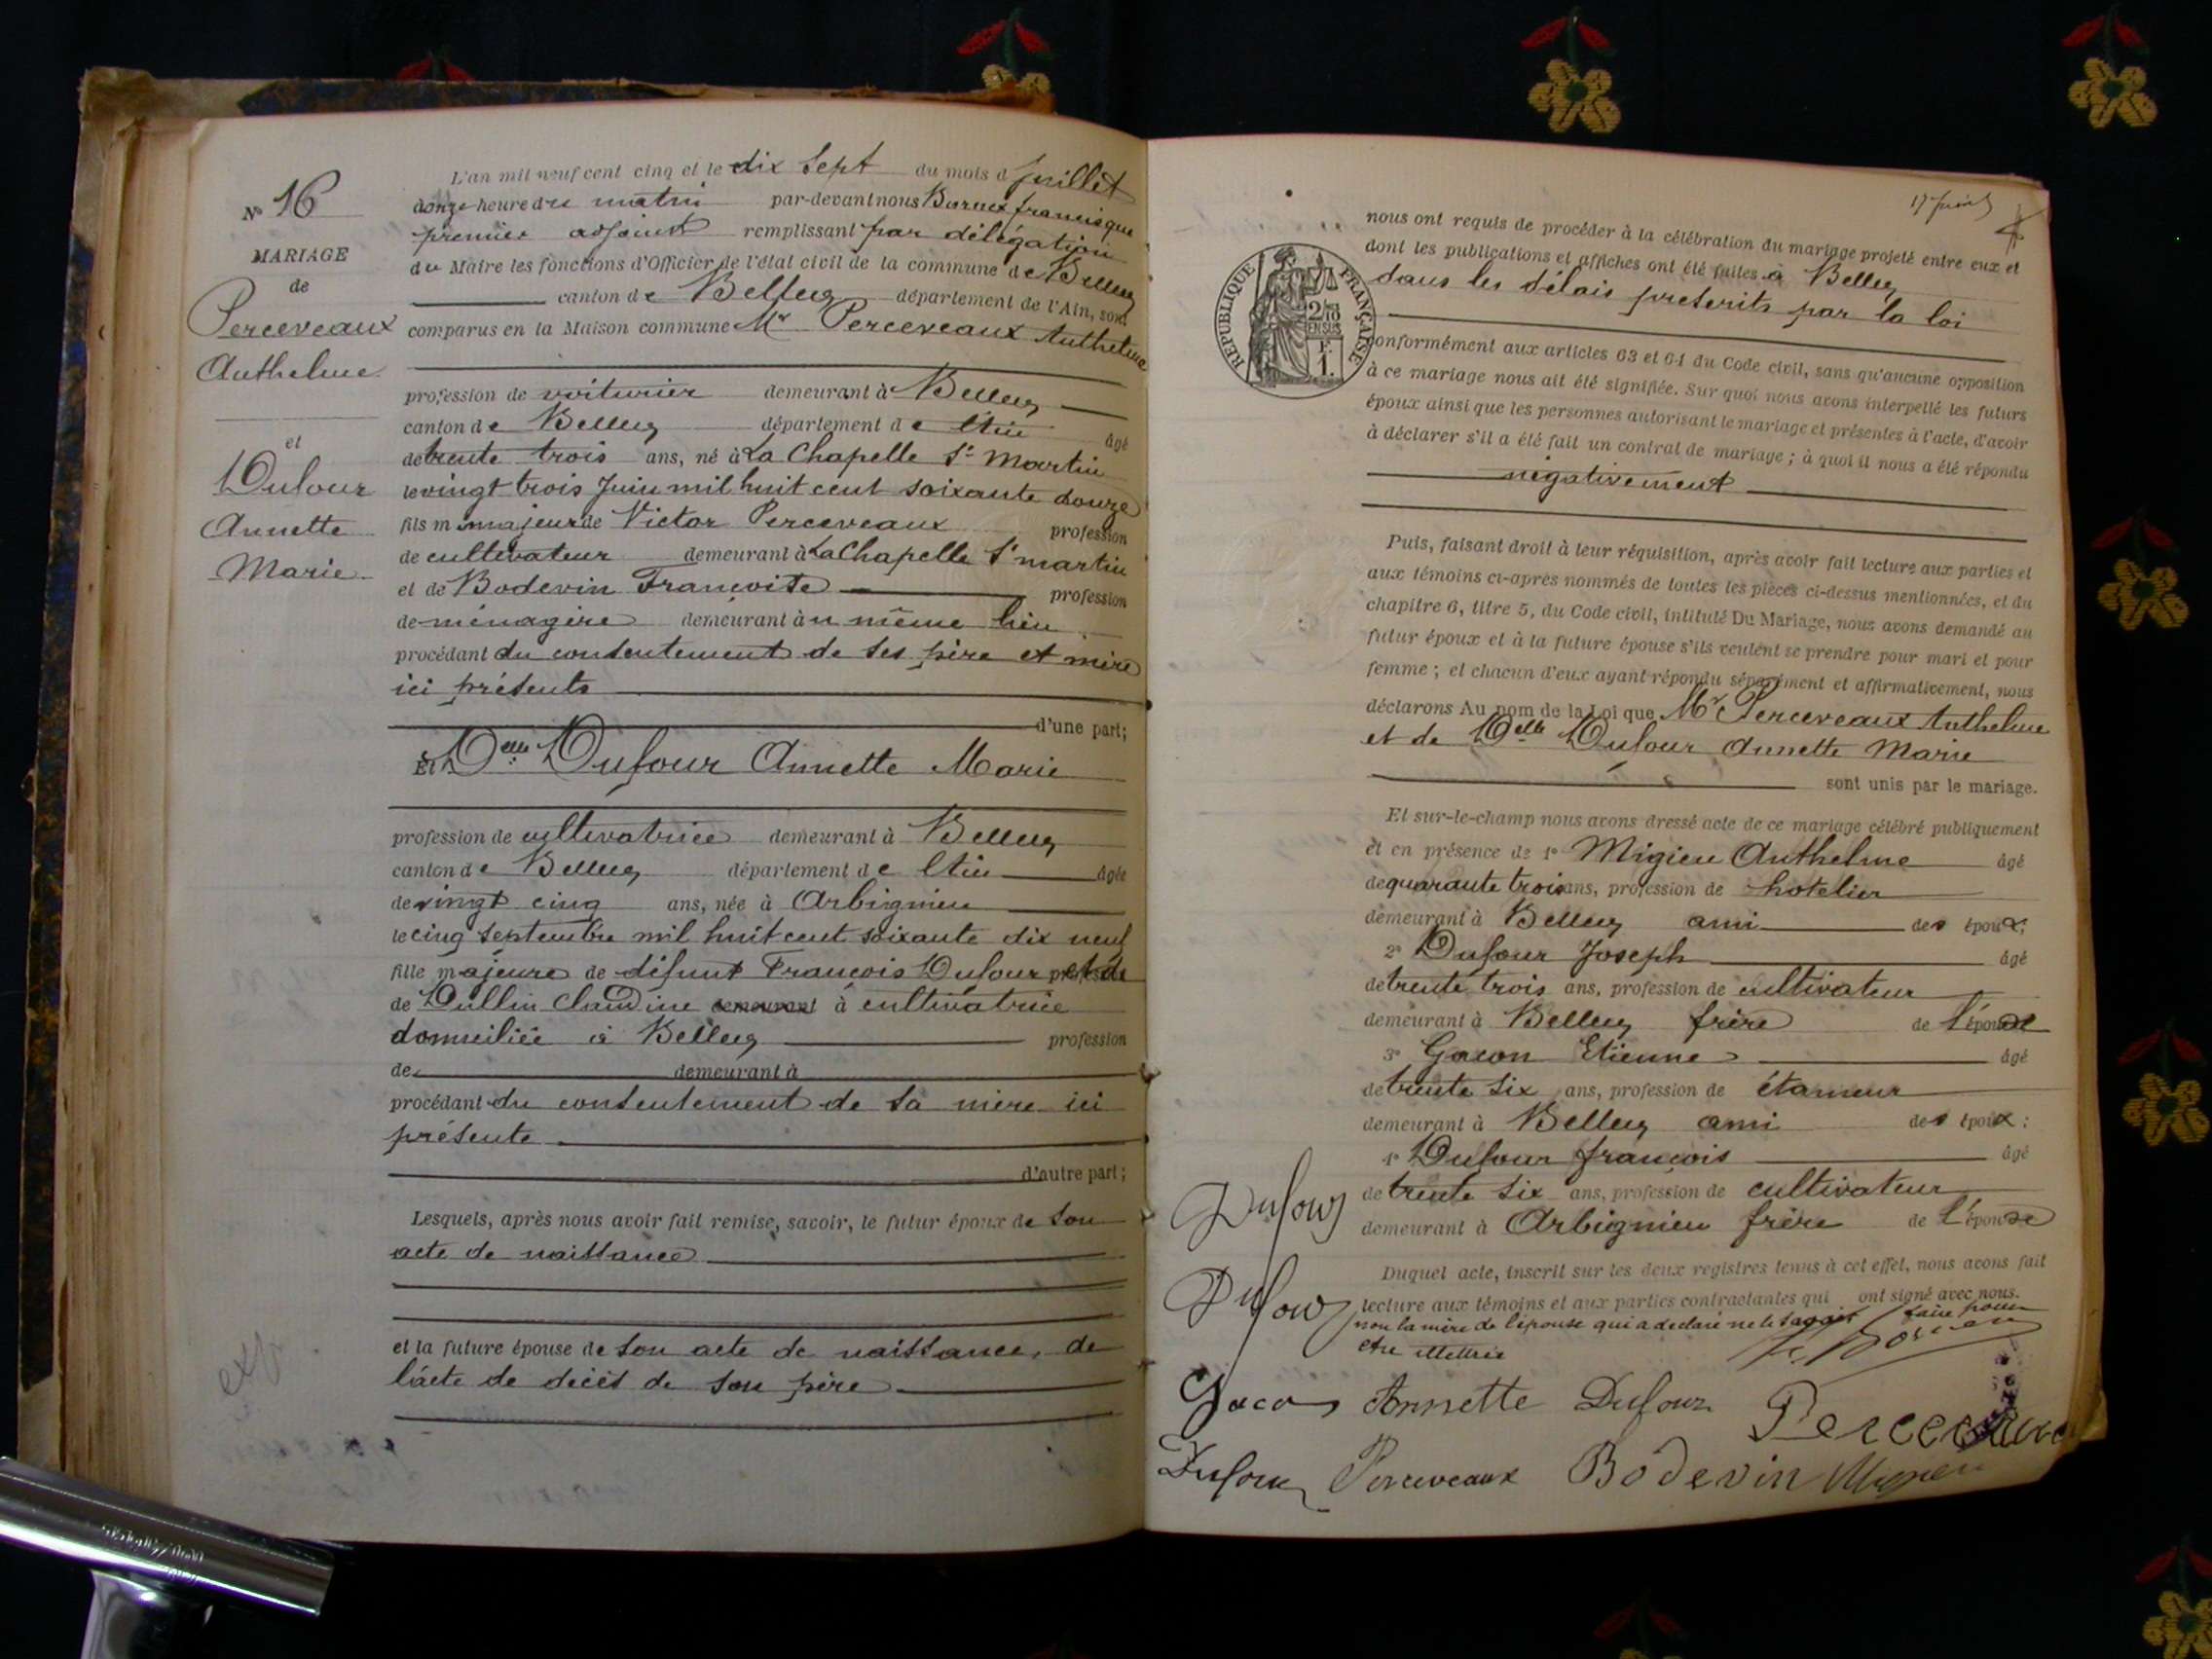 N° 16
MARIAGE
de
Perceveaux
Anthelme
et
Dufour
Annette
Marie
L'an mil neuf cent cinq et le dix sept du mois d juillet
heure du matin par-devant nous francisque
premier adjoint remplissant par délégation
du Maire les fonctions d'Officier de l'état civil de la commune de Belley
canton de Belley département de l'Ain, sont
comparus en la Maison commune Mr Perceveaux Anthelme
profession de voiturier demeurant à Belley
canton de Belley département de l'Ain âgé
de trente trois ans, né à La Chapelle St Martin
le vingt trois Juin mil huit cent soixante douze
fils majeur de Victor Perceveaux profession
de cultivateur demeurant à La Chapelle St martin
et de Bodevin Françoise profession
de ménagère demeurant à u même lieu
procédant du consentement de ses père et mère
ici présents
d'une part;
Et Delle Dufour Annette Marie
profession de cultivatrice demeurant à Belley
canton de Belley département de l'Ain âgée
de vingt cinq ans, née à Arbignieu
le cinq septembre mil huit cent soixante dix neuf
fille majeure de défunt François Dufour et de
de Dullin Claudine demeurant à cultivatrice
domiciliée à Belley profession
de demeurant à
procédant du consentement de sa mère ici
présente
d'autre part;
Lesquels, après nous avoir fait remise, savoir, le futur époux de son
acte de naissance
et la future épouse de son acte de naissance, de
l'acte de décès de son père
17 juin
RÉPUBLIQUE FRANÇAISE
2/10
EN SUS
F.
1.
nous ont requis de procéder à la célébration du mariage projeté entre eux et
dont les publications et affiches ont été faites à Belley
dans les délais prescrits par la loi
conformément aux articles 63 et 64 du Code civil, sans qu'aucune opposition
à ce mariage nous ait été signifiée. Sur quoi nous avons interpellé les futurs
époux ainsi que les personnes autorisant le mariage et présentes à l'acte, d'avoir
à déclarer s'il a été fait un contrat de mariage ; à quoi il nous a été répondu
négativement
Puis, faisant droit à leur réquisition, après avoir fait lecture aux parties et
aux témoins ci-après nommés de toutes les pièces ci-dessus mentionnées, et du
chapitre 6, titre 5, du Code civil, intitulé Du Mariage, nous avons demandé au
futur époux et à la future épouse s'ils veulent se prendre pour mari et pour
femme ; et chacun d'eux ayant répondu séparément et affirmativement, nous
déclarons Au nom de la Loi que Mr Perceveaux Anthelme
et de Delle Dufour Annette Marie
sont unis par le mariage.
Et sur-le-champ nous avons dressé acte de ce mariage célébré publiquement
et en présence de 1° Migieu Anthelme âgé
de quarante trois ans, profession de hotelier
demeurant à Belley ami des époux;
2° Dufour Joseph âgé
de trente trois ans, profession de cultivateur
demeurant à Belley frère de l'épouse
3° Gacon Etienne âgé
de trente six ans, profession de étameur
demeurant à Belley ami des époux ;
4° Dufour françois âgé
de trente six ans, profession de cultivateur
demeurant à Arbignieu frère de l'épouse
Duquel acte, inscrit sur les deux registres tenus à cet effet, nous avons fait
lecture aux témoins et aux parties contractantes qui ont signé avec nous.
non la mère de l'épouse qui a déclaré ne le savoir faire pour
être illettrée
Dufour
Dufour
Gacon Annette Dufour Perceveaux
Dufour Perceveaux Bodevin Migieu